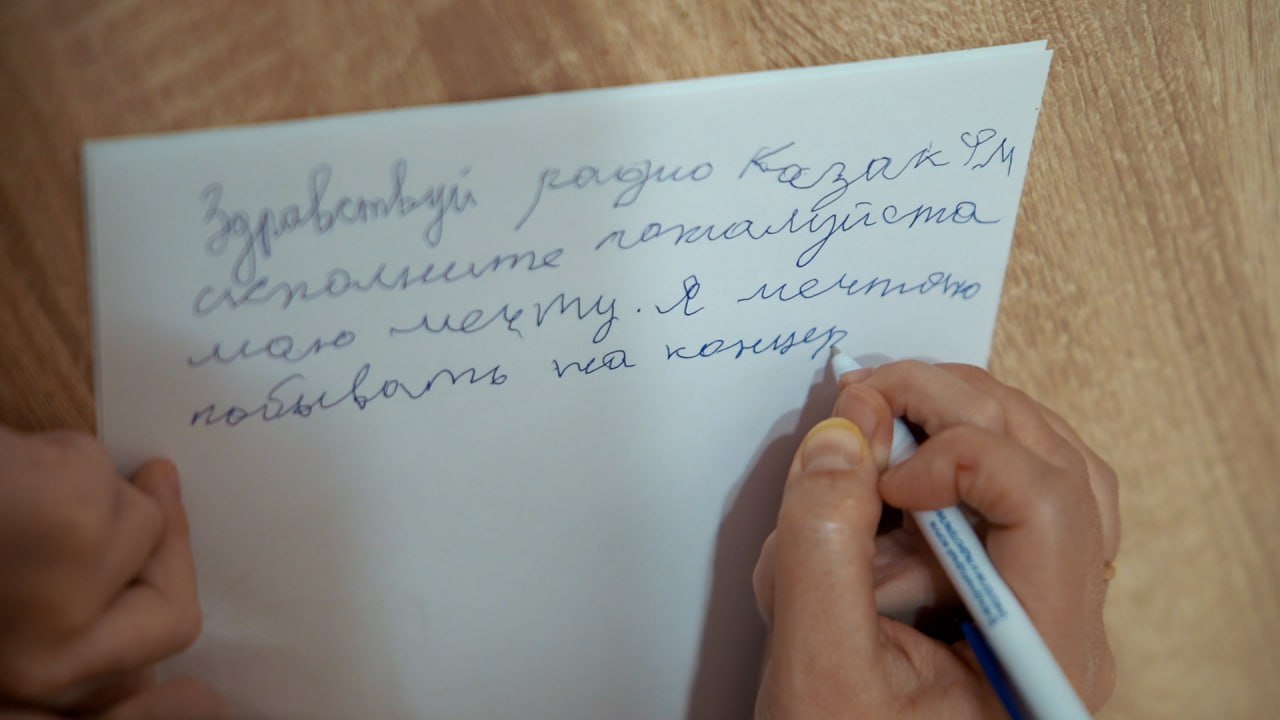 Здравствуй радио Казак ФМ
исполните пожалуйста
маю мечту. Я мечтаю
побывать на концер